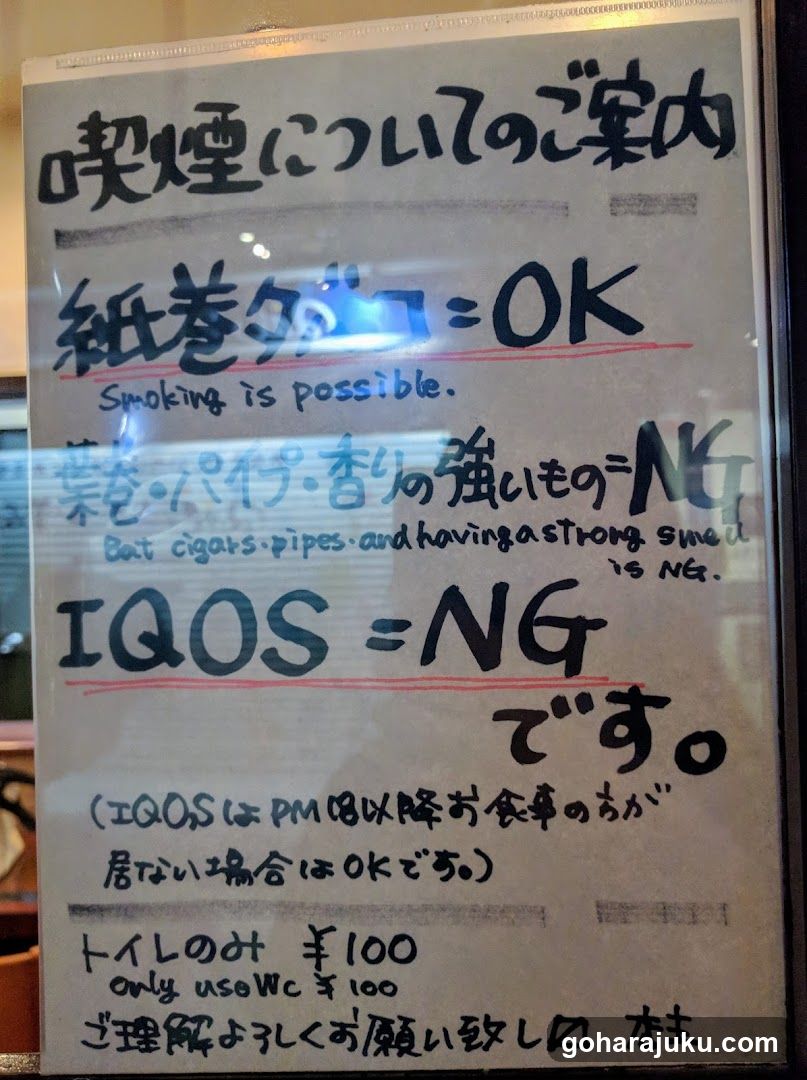 喫煙についてのご案内
紙巻タバコ=OK
Smoking is possible.
葉巻・パイプ・香りの強いもの=NG
But cigars・pipes・and having a strong smell
is NG.
IQOS=NG
です。
(IQOSはPM18以降お食事の方が
居ない場合はOKです。)
トイレのみ ¥100
only use WC ¥100
ご理解よろしくお願い致し
goharajuku.com